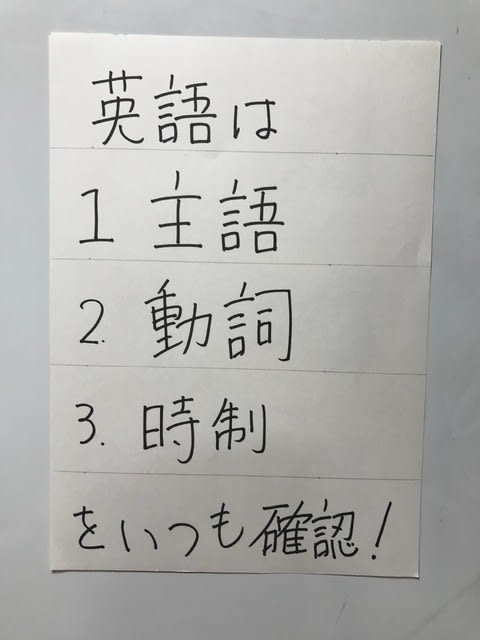 英語は
1 主語
2. 動詞
3. 時制
をいつも確認!